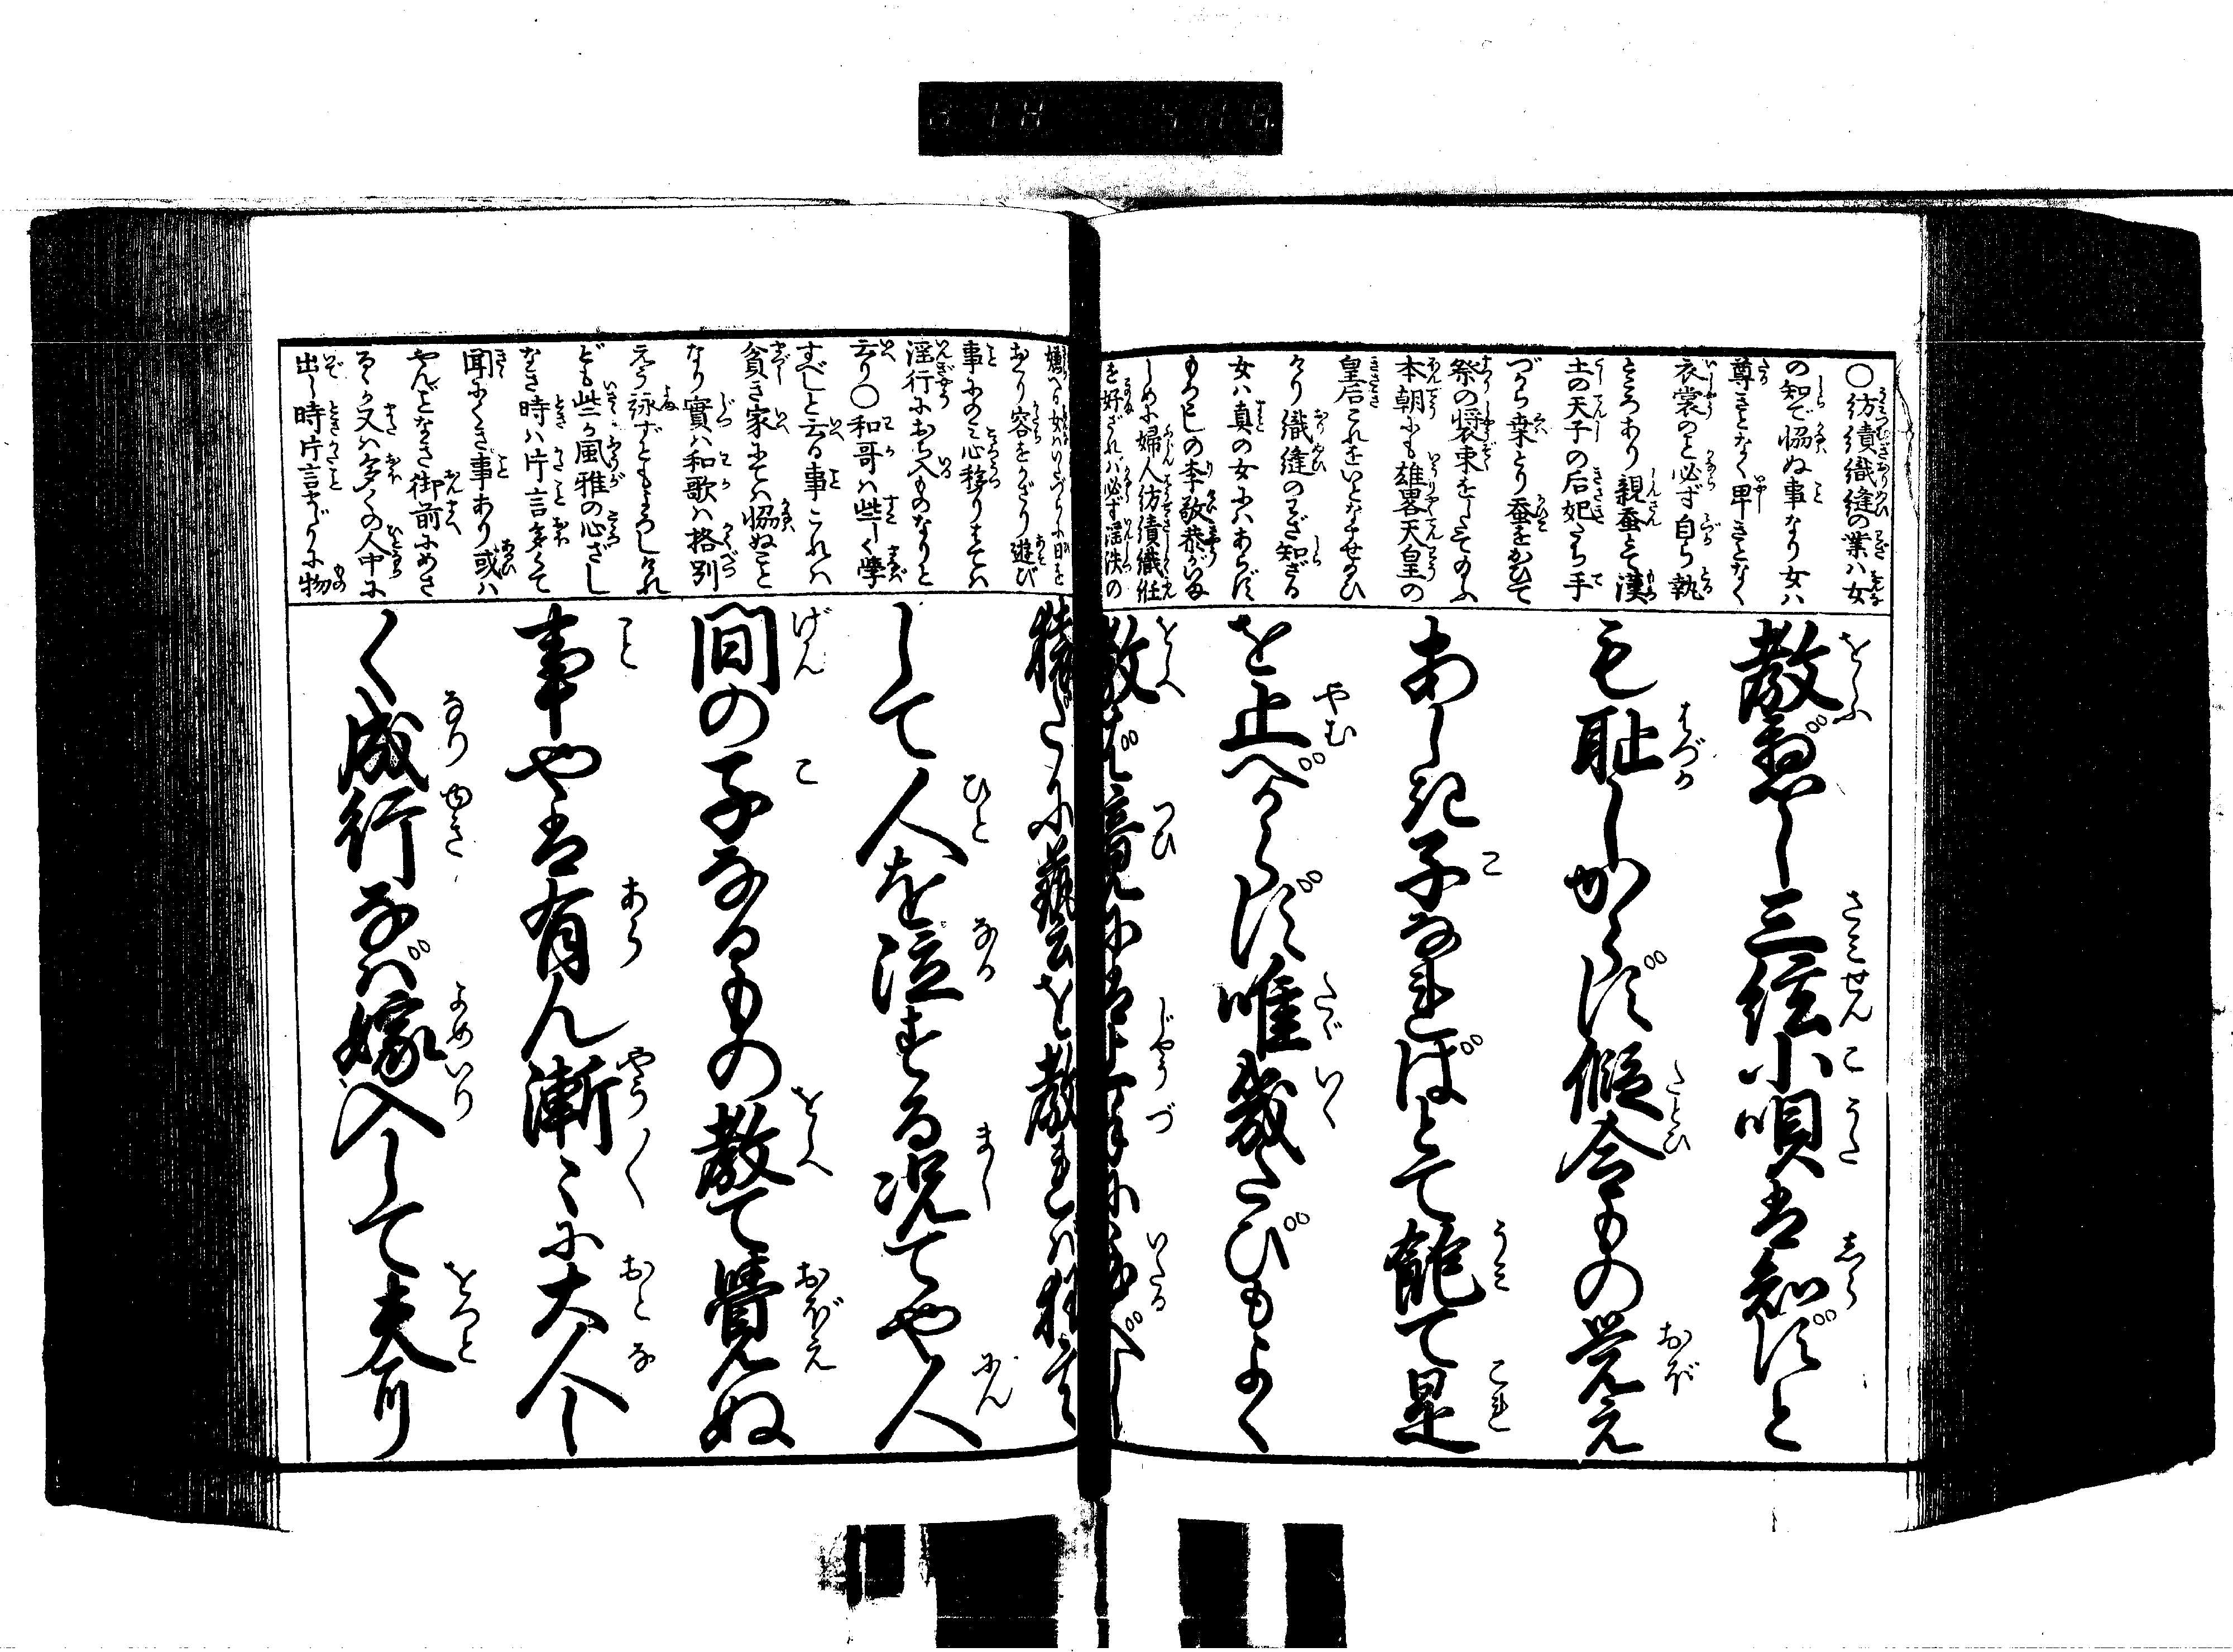 ○紡績織縫の業ハ女
の知で協ぬ事なり女ハ
尊きとなく卑きとなく
衣裳のと必ず自ら執
ところあり親蚕とて漢
土の天子の后妃たち手
づから桑とり蚕をかひて
祭の将束をしたてのふ
本朝にも雄畧天皇の
皇后これをいとなませ給ひ
けり織縫のわざ知ざる
女ハ真の女にハあらず
もろこしの李敬恭がいま
しめに婦人紡績織紝
を好ざれバ必ず淫泆の
教惡し三絃小唄ハ知ずと
も耻しからず假令もの覚え
あしき子なればとて飽て是
を止べからず唯幾たびもよく
教ば竟に上手に至べし
嫁へる女ハいたづらに日を
おくり容をかざり遊び
事にのミ心移りはてハ
淫行におち入ものなりと
云り○和哥ハ些しく學
すべしと云る事これハ
貧き家にてハ協ぬこと
なり實ハ和歌ハ格別
えう詠ずともよろしけれ
ども些か風雅の心ざし
なき時ハ片言多くて
聞にくき事あり或ハ
やんごとなき御前にめさ
るゝか又ハ多くの人中に
出し時片言まじりに物
猿だに藝を教れバ狂言
して人を泣する况てや人
間の子なるもの教て覺ぬ
事や有ん漸〻に大人し
く成行なバ嫁入して夫